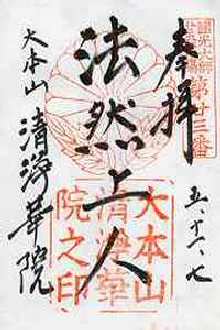 奉拝
第廿三番
法然上人
五、十二、七
大本山 清浄華院
大本山
清浄華
院之印